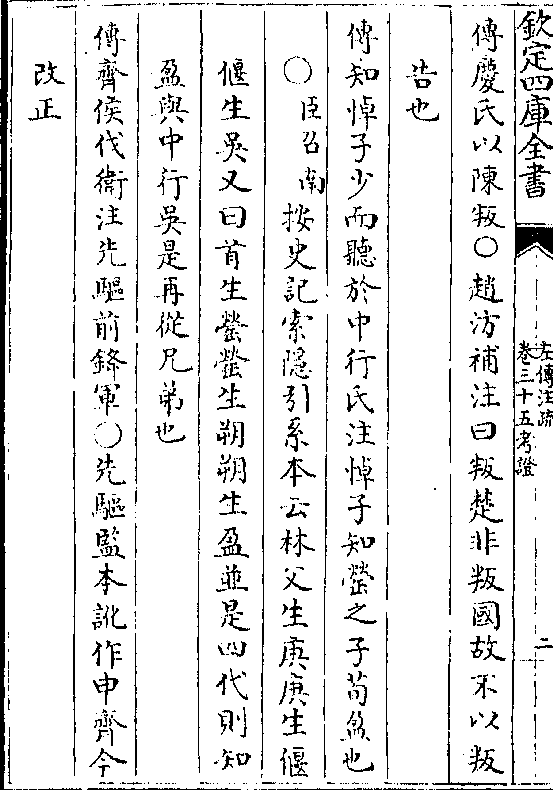 欽定四庫全書
左傳注疏
卷三十五考證
二
傳慶氏以陳叛〇趙汸補注曰叛楚非叛國故不以叛
告也
傳知悼子少而聽於中行氏注悼子知罃之子荀盈也
〇臣召南按史記索隱引系本云林父生庚庚生偃
偃生吳又曰首生罃罃生朔朔生盈並是四代則知
盈與中行吳是再從兄弟也
傳齊侯伐衛注先驅前鋒軍〇先驅監本訛作申齊今
改正